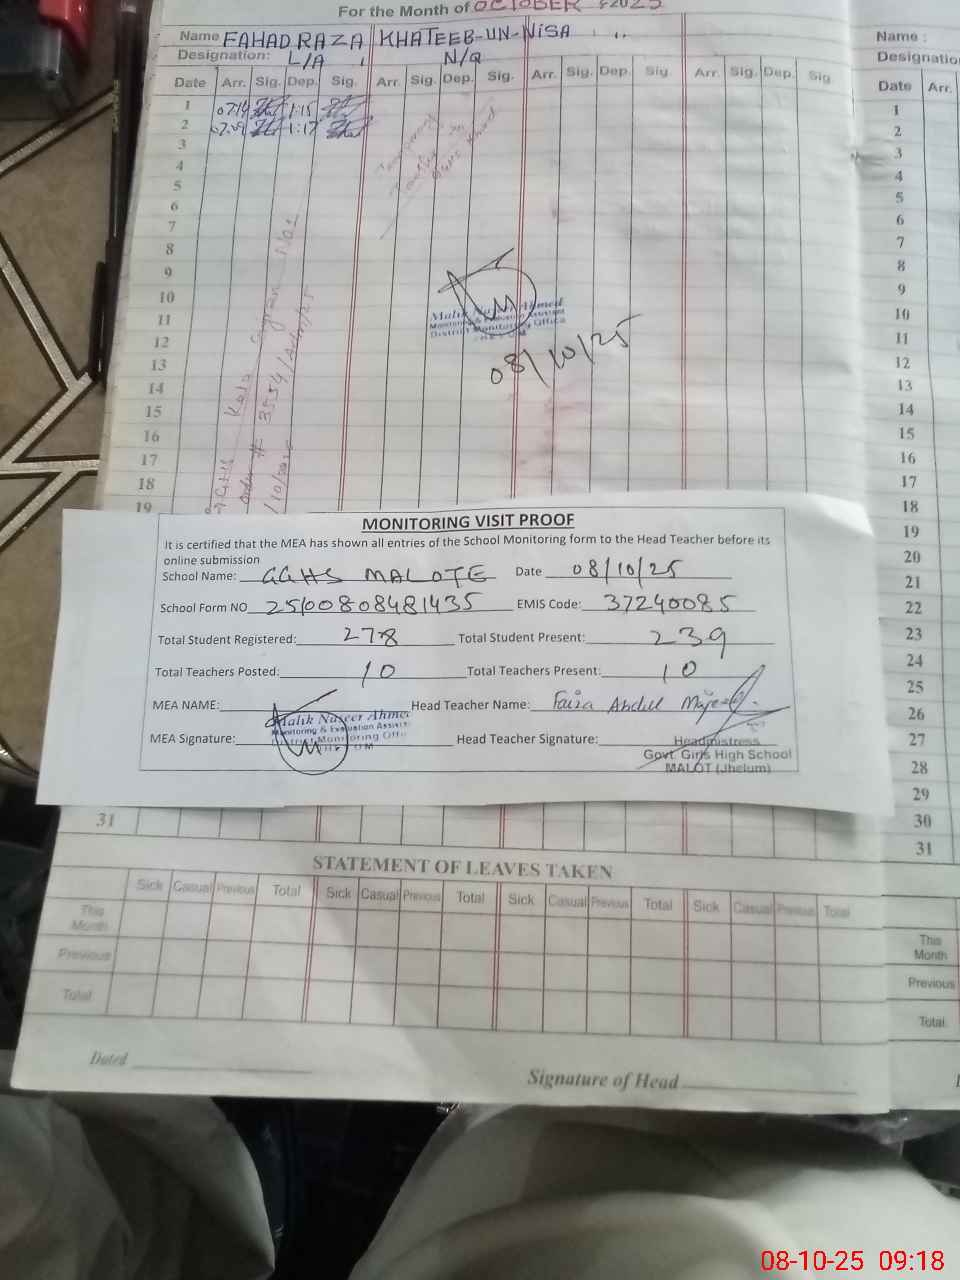 For the Month of OCTOBER 2025
Name FAHAD RAZA KHATEEB-UN-NISA
Designation: L/A N/Q
Date Arr. Sig. Dep. Sig. Arr. Sig. Dep. Sig. Arr. Sig. Dep. Sig. Arr. Sig. Dep. Sig
1 07:14 1:15
2 1:17
3
4
5
6
7
8
9
10
11
12
13
14
15
16
17
18
19
Order # 3554/Adm/25
Malik Naseer Ahmed
Monitoring & Evaluation Assistant
District Monitoring Office
JHELUM
08/10/25
MONITORING VISIT PROOF
It is certified that the MEA has shown all entries of the School Monitoring form to the Head Teacher before its
online submission
School Name: GGHS MALOTE Date 08/10/25
School Form NO 2500808481435 EMIS Code: 37240085
Total Student Registered: 278 Total Student Present: 239
Total Teachers Posted: 10 Total Teachers Present: 10
MEA NAME: Head Teacher Name: Faiza Abdul Majeed.
Malik Naseer Ahmed
Monitoring & Evaluation Assistant
District Monitoring Office
JHELUM
MEA Signature: Head Teacher Signature:
Headmistress
Govt. Girls High School
MALOT (Jhelum)
31
STATEMENT OF LEAVES TAKEN
Sick Casual Previous Total Sick Casual Previous Total Sick Casual Previous Total Sick Casual Previous Total
This Month
Previous
Total
Dated
Signature of Head
Name :
Designation
Date Arr.
1
2
3
4
5
6
7
8
9
10
11
12
13
14
15
16
17
18
19
20
21
22
23
24
25
26
27
28
29
30
31
This Month
Previous
Total
08-10-25 09:18